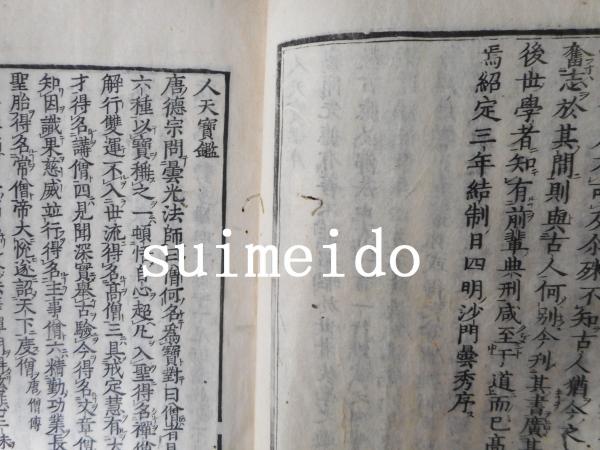 奮志於其間則與古人何別今刋其書廣其
後世學者知有前輩典刑咸至于道而已高
焉紹定三年結制日四明沙門曇秀序
人天寶鑑
唐德宗問曇光法師曰僧何名爲寶對曰僧者
六種以寶稱之一頓悟自心超凡入聖得名禪僧
解行雙運不入世流得名高僧三具戒定慧有大
才得名講僧四見聞深實舉古驗今得名文章僧
知因識果慈威並行得名主事僧六精勤功業長
聖胎得名常僧帝大悅遂詔天下度僧 唐僧傳
suimeido